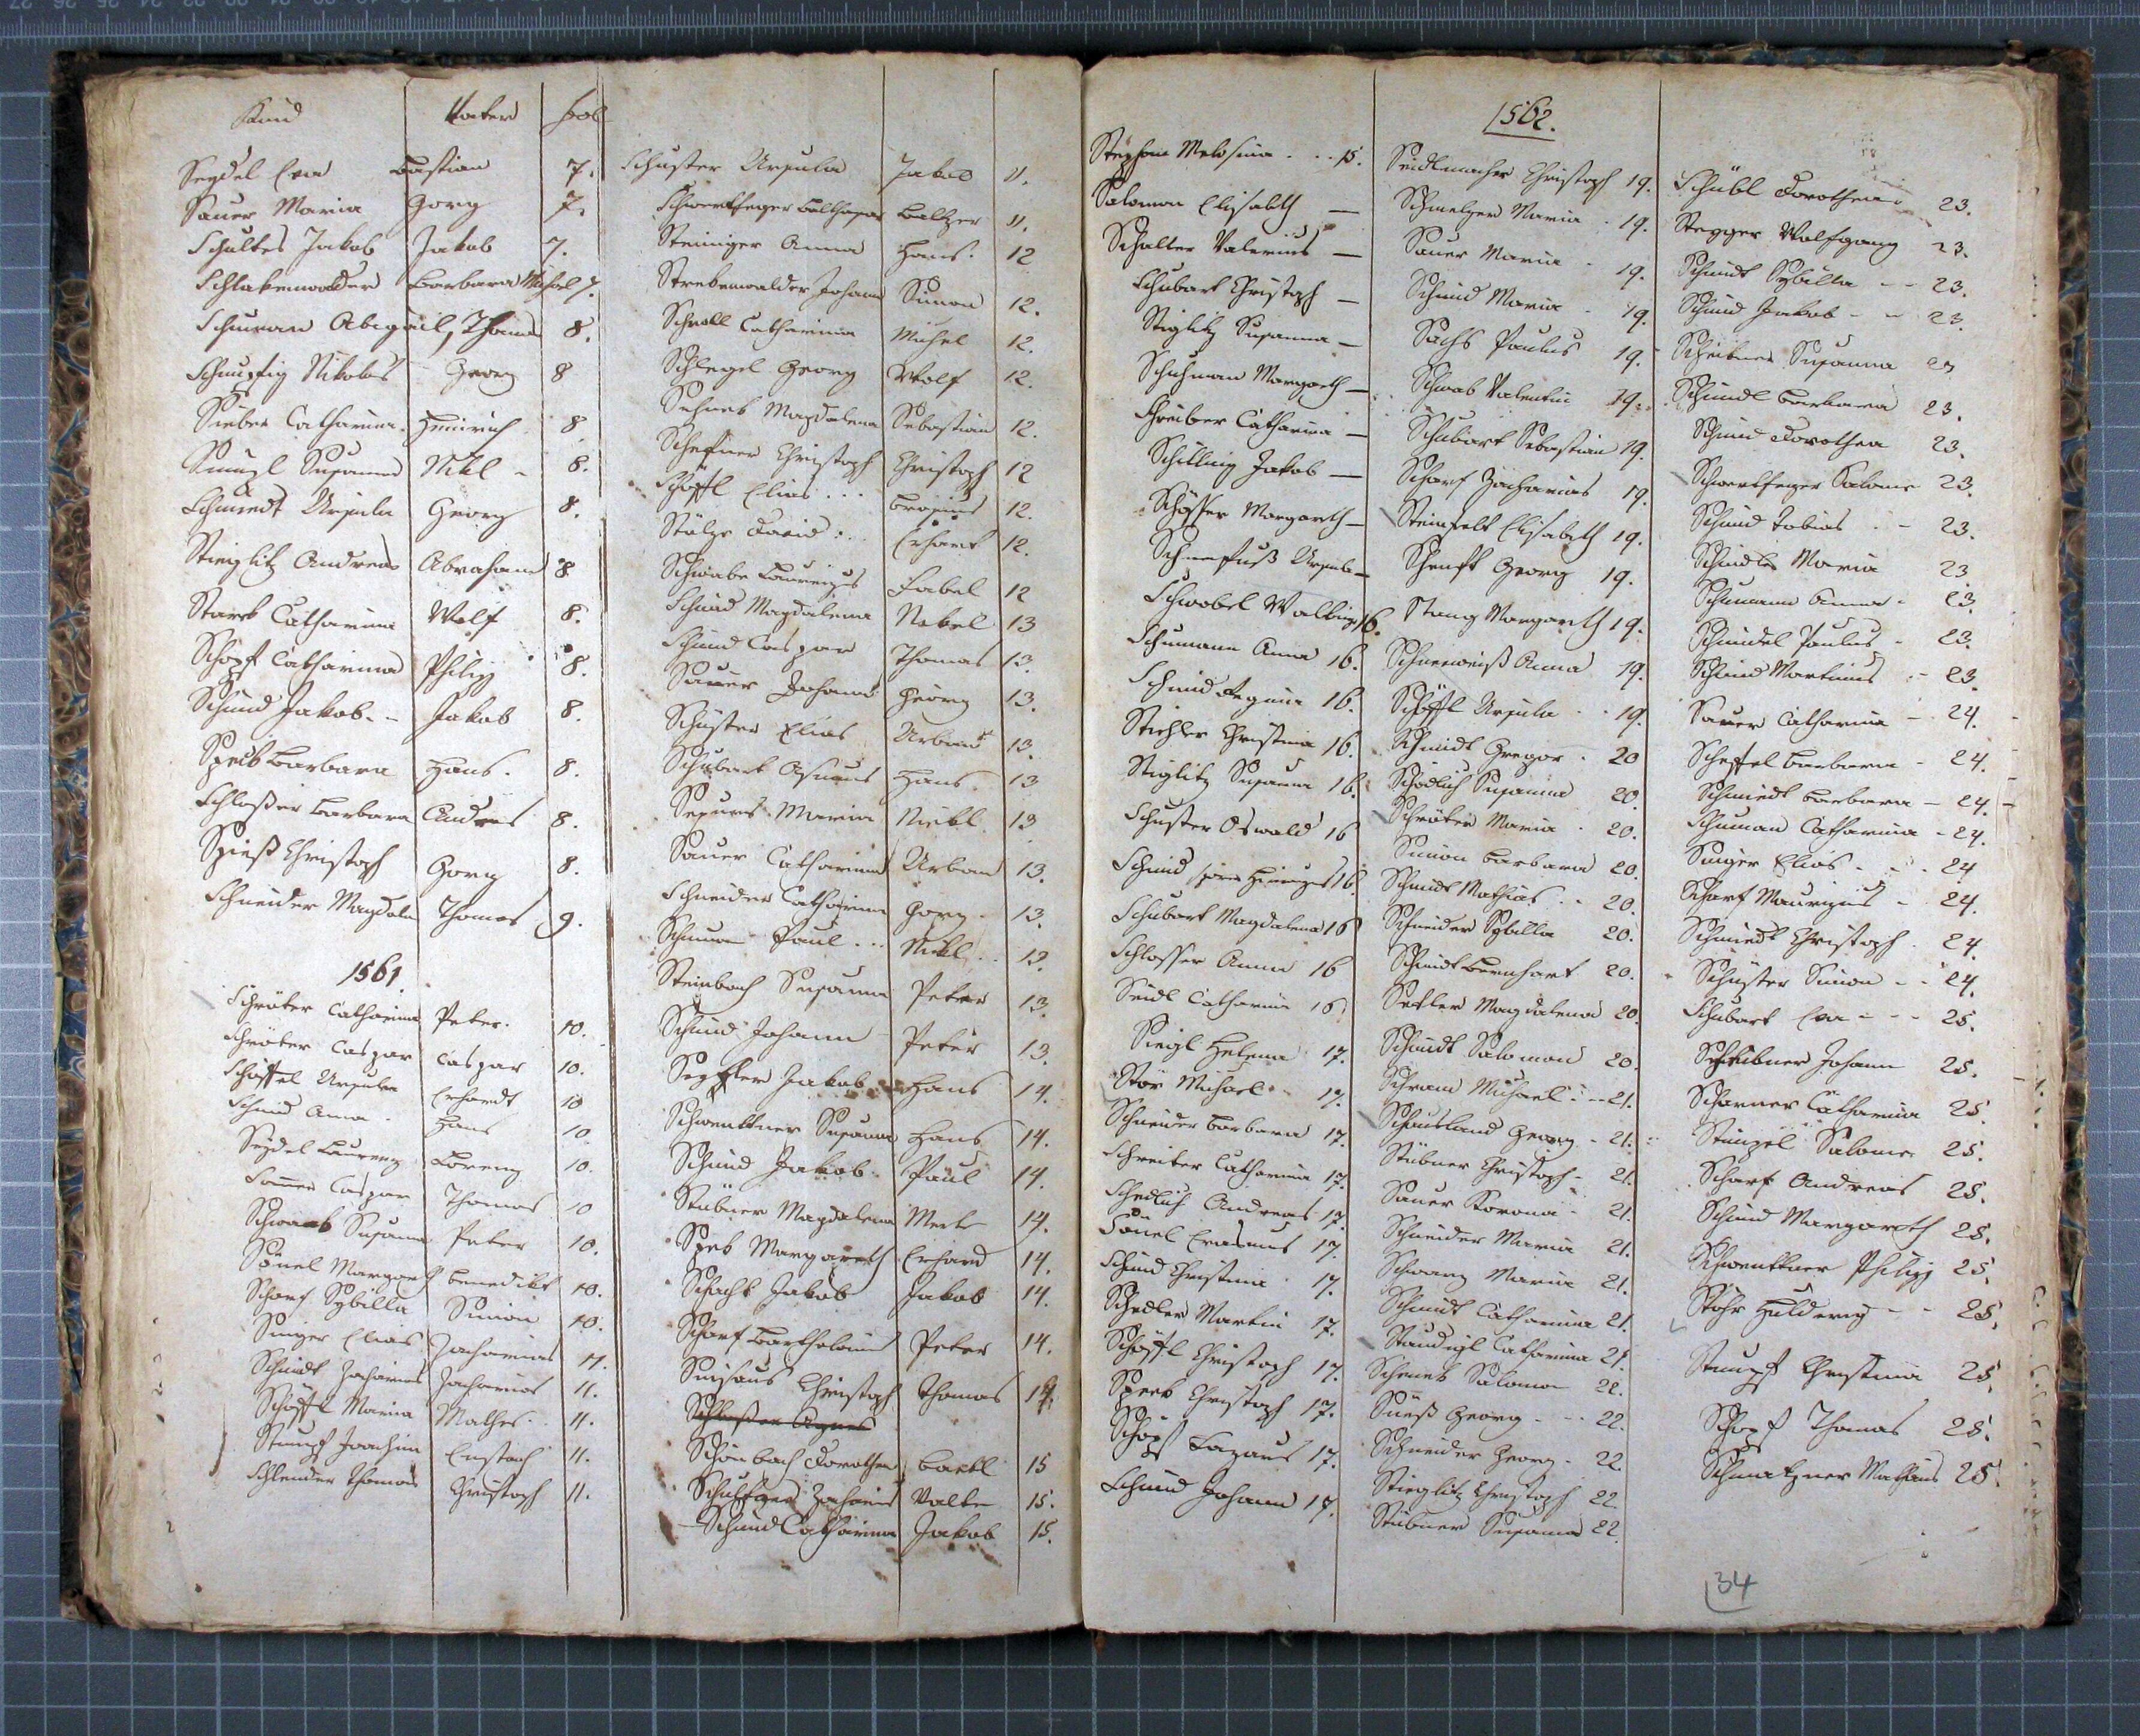 Kind Vater Fol
Seydel Eva Bastian 7.
Sauer Maria Gorg 7.
Schultes Jakob Jakob 7.
Schlakenwalder Barbara Michel 7.
Schuman Abigail, Thoma 8.
Nikolas Georg 8
Sieber Catharina. Heinrich 8.
Susanna Nikl - 8.
Schmiedt Ursula Georg 8.
Stieglitz Andreas Abraham 8
Stark Catharina Wolf 8.
Schopf Catharina Philip 8.
Schmid Jakob. - Jakob 8.
Speck Barbara Hans. 8.
Schloßer Barbara Andres 8.
Spieß Christoph Gorg 8.
Schneider Magdalen Thomas 9.
1561.
Schröter Catharina Peter. 10.
Schröter Caspar Caspar 10.
Schöffel Ursula Erhardt 10
Schmid Anna. Hans 10
Seydel Laurenz Lorenz 10.
Caspar Thomas 10
Schwab Susanna Peter 10.
Margaret Benedikt 10.
Scharf Sybilla Simon 10.
Singer Elias Zacharias 11.
Schmidt Zacharias Zacharias 11.
Schöffl Maria Mathes. 11.
Stumpf Joachim Eustach 11.
Schlender Thomas Christoph 11.
Schuster Ursula Jakob 11.
Schwertfeger Balthasar Baltzer 11.
Steiniger Anna Hans. 12
Strebenwalder Johann Simon 12.
Schroll Catharina Michel 12.
Schlegel Georg Wolf 12.
Magdalena Sebastian 12.
Schefner Christoph Christoph 12
Schöffl Elias ... 12.
David : .. Erhart 12.
Schwabe Fabel 12
Schmid Magdalena Nabel 13
Schmid Caspar Thomas 13.
Sauer Johann Georg 13.
Schuster Elias Urban 13.
Schubart Asmus Hans 13
Maria Nickl 13
Sauer Catharina Urban 13.
Schneider Catharina Gorg. 13.
Schuman Paul ... Nikl.. 13.
Steinbach Susanna Peter 13.
Schmid Johann - Peter 13.
Jakob Hans 14.
Schwenttner Susanna Hans 14.
Schmid Jakob. Paul 14.
Stübner Magdalena 14.
Speck Margareth Erhard 14.
Schacht Jakob Jakob 14.
Scharf Bartholome Peter 14.
Christoph Thomas 14.
Schloßer Agnes
Schönbach Dorothea Bartl 15
Zacharias Valten 15.
Schmid Catharina Jakob 15.
1562.
Stephan Melosina . . . 15.
Salomon Elisabeth —
Schalter Valerius —
Schubart Christoph —
Stiglitz Susanna —
Schuhman Margareth —
Schreiber Catharina —
Schilling Jakob —
Schösser Margareth —
Ursula —
Schwobel Walburg 16.
Schumann Anna 16.
Schmid Regina 16.
Stichler Christina 16.
Stiglitz Susanna 16.
Schuster Oswald 16
Schmid 16.
Schubart Magdalena 16
Schlosser Anna 16
Seidl Catharina 16
Helena 17.
Stör Michael - 17.
Schneider Barbara 17.
Schreiber Catharina 17.
Schedlich Andreas 17.
Erasmus 17.
Schmid Christina 17.
Schedler Martin 17.
Schöffl Christoph 17.
Speck Christoph 17.
Schöpf Lazarus 17.
Schmid Johann 17.
Seidlmacher Christoph 19.
Schmelzer Maria . 19.
Sauer Maria . 19.
Schmid Maria . 19.
Sachs Paulus 19.
Schwab Valentin 19.
Schubart Sebastian 19.
Scharf Zacharias 19.
Elisabeth 19.
Schenk Georg 19.
Stang Margareth 19.
Schneeweiß Anna 19.
Schöffl Ursula . . 19.
Schmidt Gregor . 20
Schedlich Susanna 20.
Schröter Maria . 20.
Simon Barbara 20.
Schmidt Mathias . . 20.
Schneider Sybilla 20.
Schmidt Bernhart 20.
Magdalena 20.
Schmidt Salomon 20.
Schram Michael - -- 21.
Schausland Georg - 21.
Stübner Christoph - 21.
Sauer Korona - 21.
Schneider Maria 21.
Schwarz Maria 21.
Schmidt Catharina 21.
Staudigl Catharina 21.
Schenk Salomon 22.
Süeß Georg - . . 22.
Schneider Georg . 22.
Stieglitz Christoph 22
Stübner Susanna 22.
Schübl Dorothea . 23.
Stegger Wolfgang 23.
Schmidt Sybilla - - 23.
Schmid Jakob - - 23.
Scheibner Susanna 23
Schmidl Barbara 23.
Schmid Dorothea 23.
Schwertfeger Salome 23.
Schmid Tobias . - 23.
Schindler Maria 23
Schumann Anna - 23.
Schmidel Paulus - 23.
Schmid Martinus - 23.
Sauer Catharina - 24.
Scheffel Barbara - 24.
Schmiedt Barbara - 24. -
Schuman Catharina - 24.
Singer Elias - - . 24
Scharf Maurizius - 24.
Schmiedt Christoph . 24.
Schuster Simon - - 24.
Schubart Eva - - - 25.
Johann 25.
Scharner Catharina 25.
Stenzel Salome 25.
Scharf Andreas 25.
Schmid Margareth 25.
Schwenttner Philipp 25.
Stöhr - - 25.
Stumpf Christina 25.
Schopf Thomas 25.
Schmalzner Mathäus 25.
34